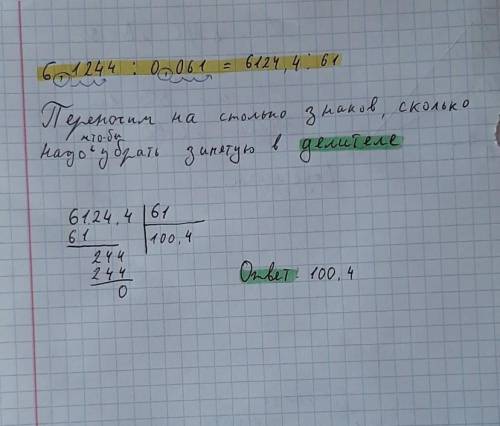 6,1244 : 0,061 = 6124,4 : 61
Переносим на столько знаков, сколько
надо что-бы убрать запятую в делителе
6124,4 | 61
61 | 100,4
244
244
0
Ответ: 100,4